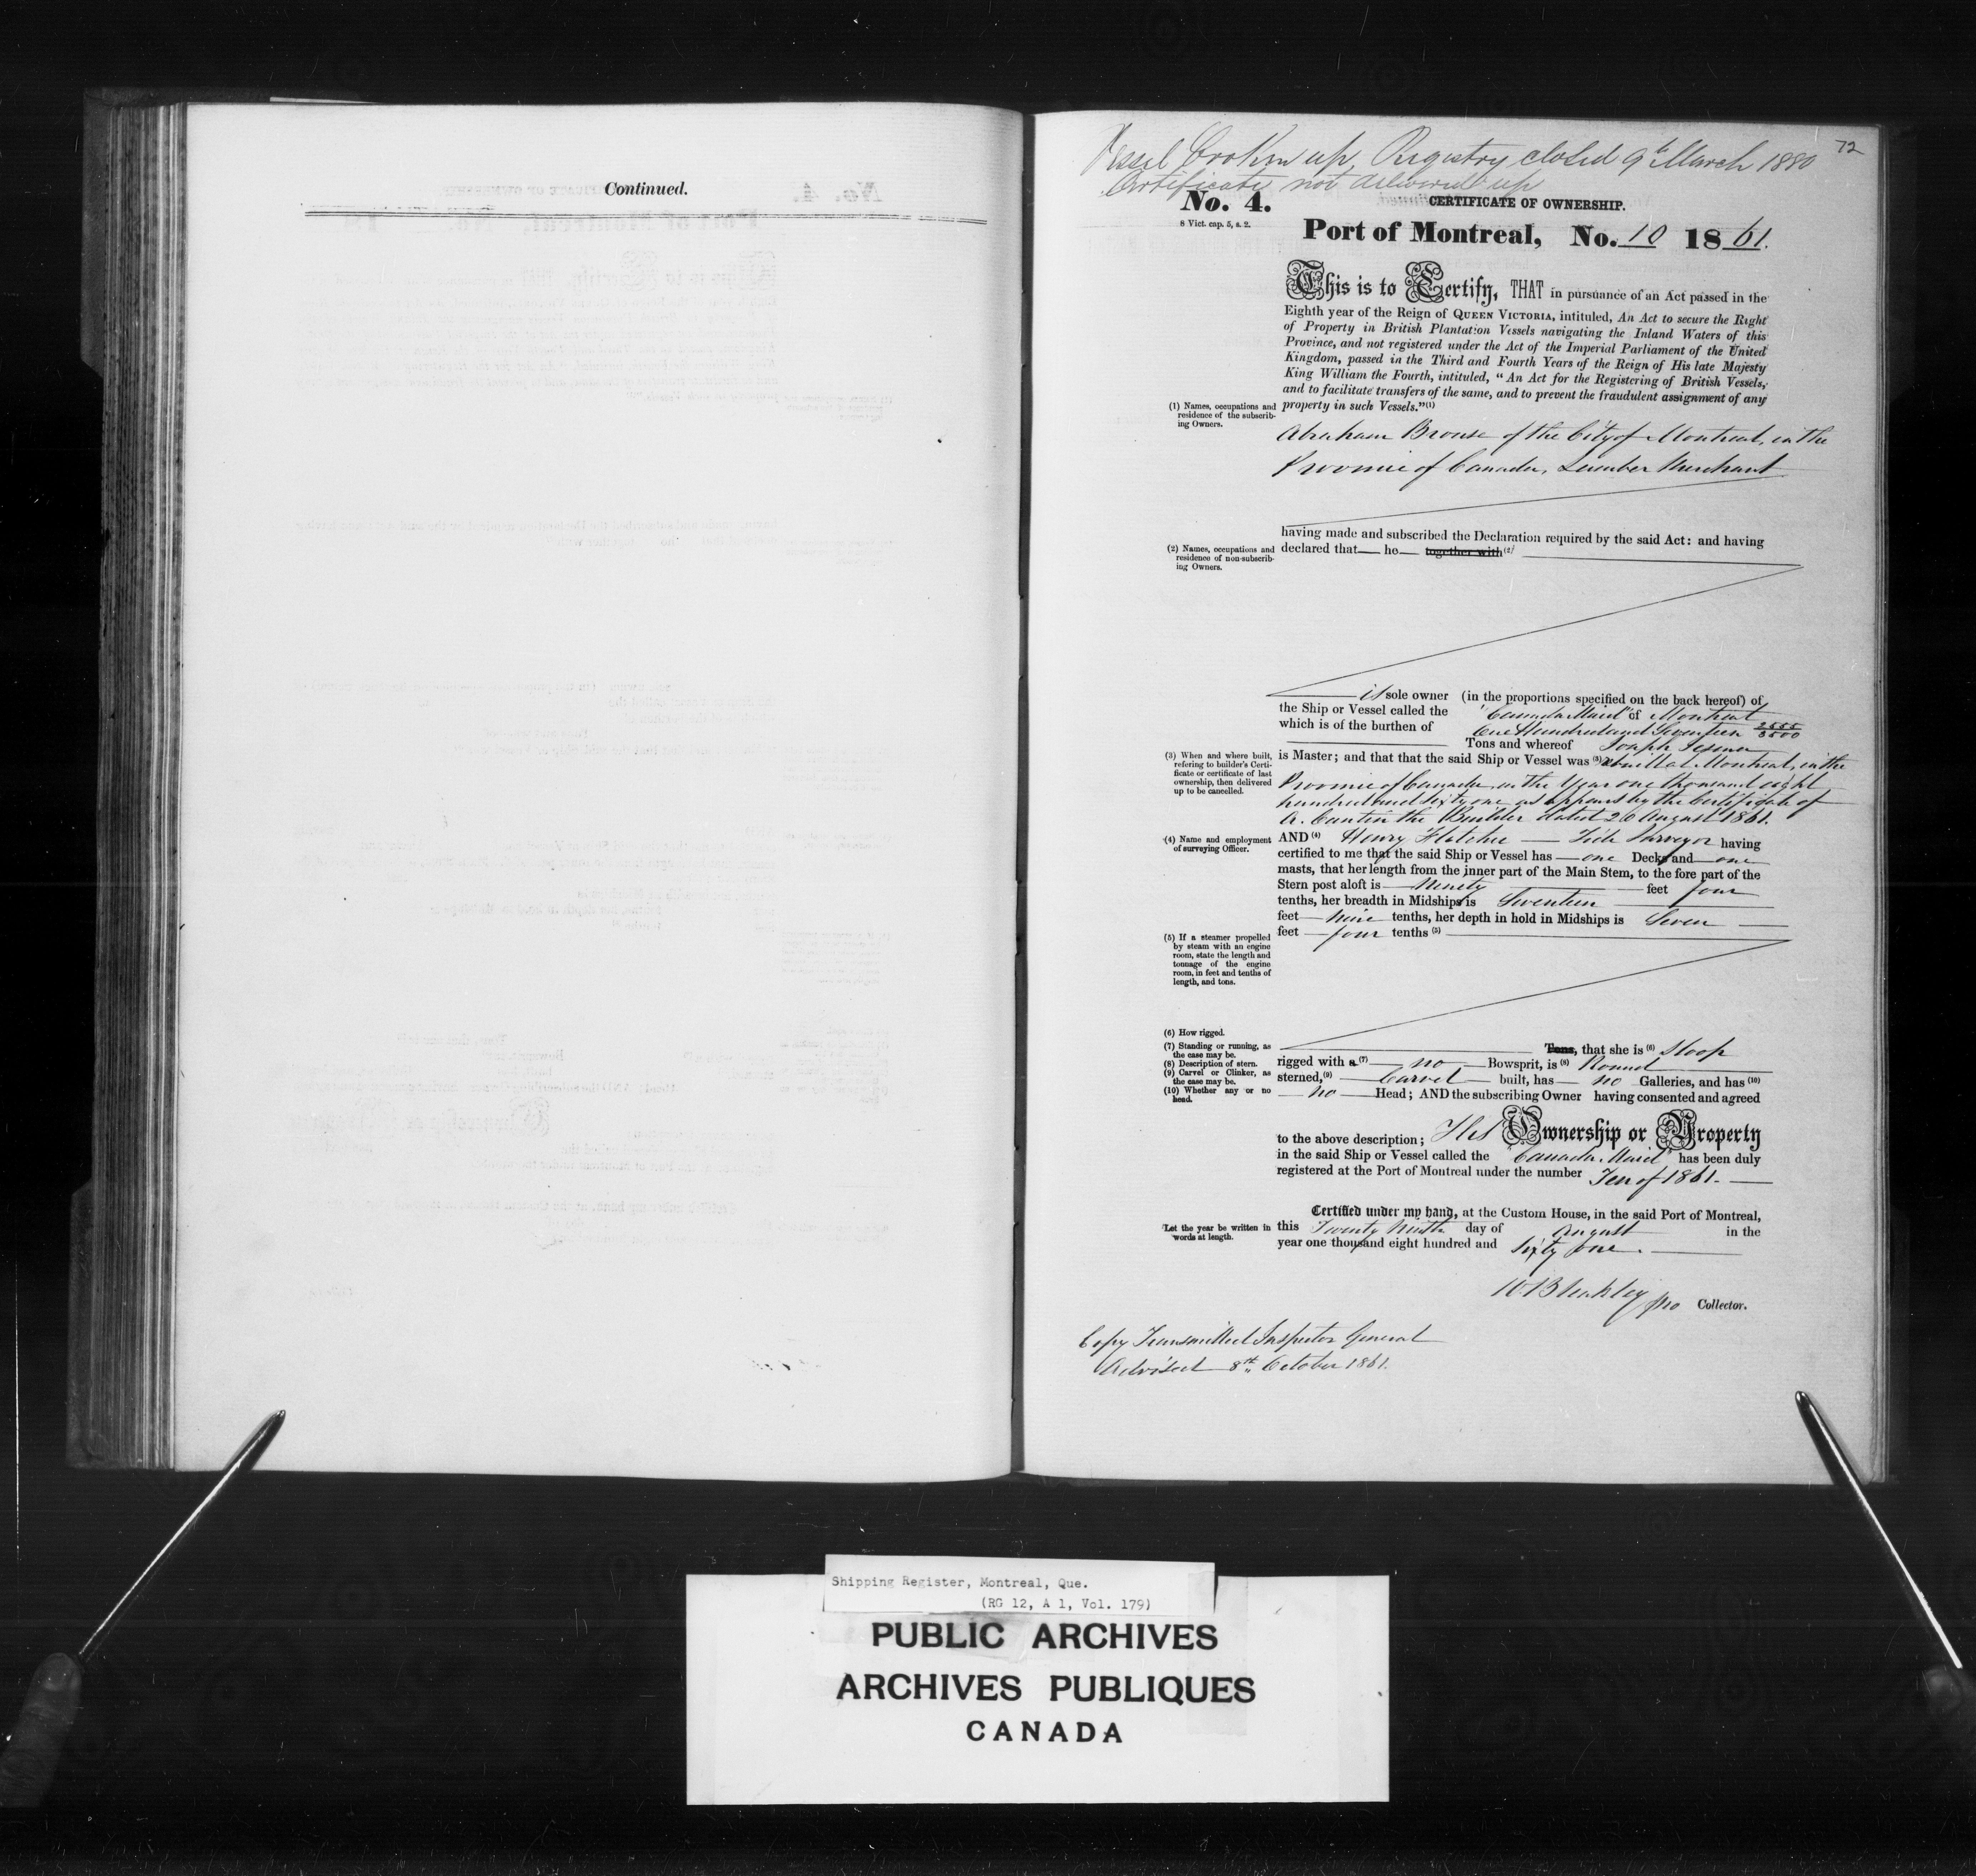 Continued.
72
Vessel broken up, Registry closed 9th March 1880
Certificate not delivered up
No. 4.
8 Vict. cap. 5, s. 2.
CERTIFICATE OF OWNERSHIP.
Port of Montreal, No. 10 1861.
This is to Certify, THAT in pursuance of an Act passed in the
Eighth year of the Reign of QUEEN VICTORIA, intituled, An Act to secure the Right
of Property in British Plantation Vessels navigating the Inland Waters of this
Province, and not registered under the Act of the Imperial Parliament of the United
Kingdom, passed in the Third and Fourth Years of the Reign of His late Majesty
King William the Fourth, intituled, "An Act for the Registering of British Vessels,
and to facilitate transfers of the same, and to prevent the fraudulent assignment of any
property in such Vessels."(1)
(1) Names, occupations and
residence of the subscrib-
ing Owners.
Abraham Brouse of the City of Montreal, in the
Province of Canada, Lumber Merchant
having made and subscribed the Declaration required by the said Act: and having
declared that he together with (2)
(2) Names, occupations and
residence of non-subscrib-
ing Owners.
is sole owner (in the proportions specified on the back hereof) of
the Ship or Vessel called the "Canada Maid" of Montreal
which is of the burthen of One Hundred and Seventeen 2555/3500
Tons and whereof Joseph
is Master; and that that the said Ship or Vessel was (3) built at Montreal, in the
Province of Canada, in the Year one thousand eight
hundred and sixty one as appears by the Certificate of
A. Cantin the Builder dated 26 August 1861.
(3) When and where built,
refering to builder's Certi-
ficate or certificate of last
ownership, then delivered
up to be cancelled.
AND (4) Henry Fletcher — Tide Surveyor having
certified to me that the said Ship or Vessel has one Decks and one
masts, that her length from the inner part of the Main Stem, to the fore part of the
Stern post aloft is Ninety feet four
tenths, her breadth in Midships is Seventeen
feet Nine tenths, her depth in hold in Midships is Seven
feet four tenths (5)
(4) Name and employment
of surveying Officer.
(5) If a steamer propelled
by steam with an engine
room, state the length and
tonnage of the engine
room, in feet and tenths of
length, and tons.
(6) How rigged.
(7) Standing or running, as
the case may be.
(8) Description of stern.
(9) Carvel or Clinker, as
the case may be.
(10) Whether any or no
head.
Tons, that she is (6) Sloop
rigged with a (7) no Bowsprit, is (8) Round
sterned, (9) Carvel built, has no Galleries, and has (10)
no Head; AND the subscribing Owner having consented and agreed
to the above description; His Ownership or Property
in the said Ship or Vessel called the "Canada Maid" has been duly
registered at the Port of Montreal under the number Ten of 1861.
Certified under my hand, at the Custom House, in the said Port of Montreal,
this Twenty Ninth day of August in the
year one thousand eight hundred and Sixty one.
Let the year be written in
words at length.
W Bleakley pro Collector.
Copy Transmitted Inspector General
Advised 8th October 1861.
Shipping Register, Montreal, Que.
(RG 12, A 1, Vol. 179)
PUBLIC ARCHIVES
ARCHIVES PUBLIQUES
CANADA